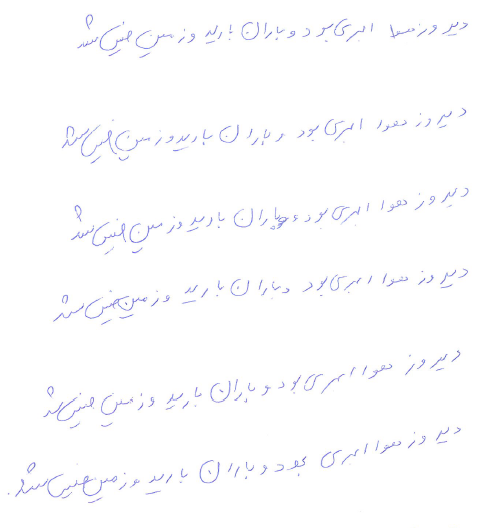 دیروز هوا ابری بود و باران بارید و زمین خیس شد
دیروز هوا ابری بود و باران بارید و زمین خیس شد
دیروز هوا ابری بود و باران بارید و زمین خیس شد
دیروز هوا ابری بود و باران بارید و زمین خیس شد
دیروز هوا ابری بود و باران بارید و زمین خیس شد
دیروز هوا ابری بود و باران بارید و زمین خیس شد.